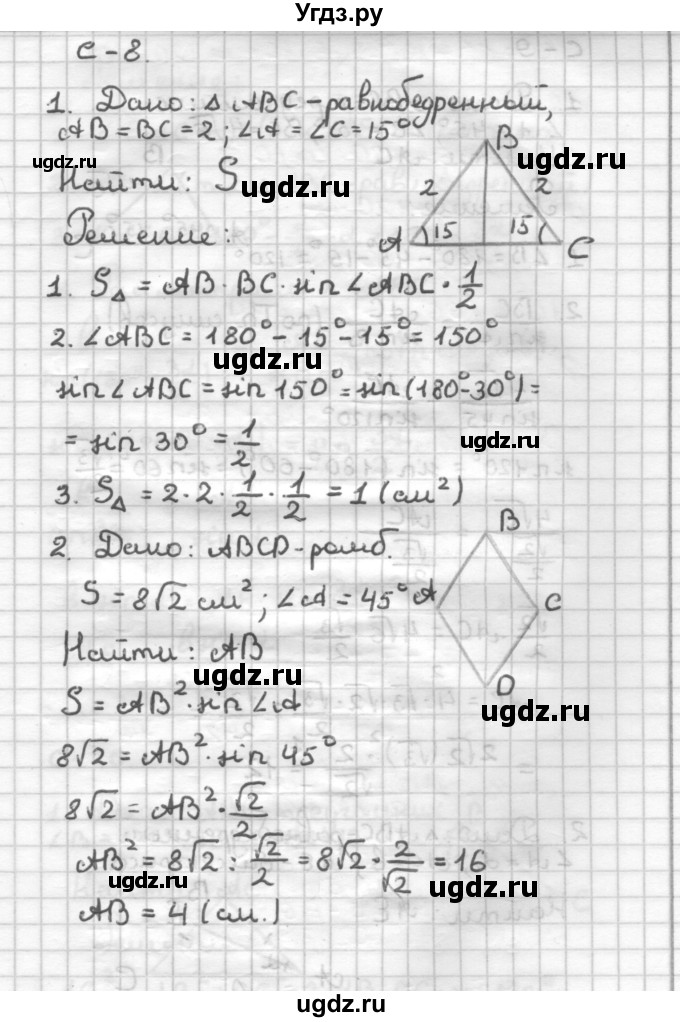 Угдз.ру
С-8.
1. Дано: △ ABC-равнобедренный,
AB=BC=2; ∠A=∠C=15°
ugdz.ru
ugdz.ru
Найти: S
ugdz.ru
B
2 2
A 15 15 C
Решение:
1. S△ = AB·BC·sin∠ABC·1/2
2. ∠ABC=180°-15°-15°=150°
ugdz.ru
sin∠ABC=sin150°=sin(180°-30°)=
= sin 30° = 1/2
ugdz.ru
3. S△ = 2·2·1/2·1/2 = 1 (см²)
2. Дано: ABCD-ромб.
S=8√2 см²; ∠A=45°
B
A C
D
Найти: AB
ugdz.ru
S = AB²·sin∠A
ugdz.ru
8√2 = AB²·sin 45°
8√2 = AB²·√2/2
ugdz.ru
AB² = 8√2 : √2/2 = 8√2·2/√2 = 16
ugdz.ru
ugdz.ru
AB = 4 (см.)
ugdz.ru